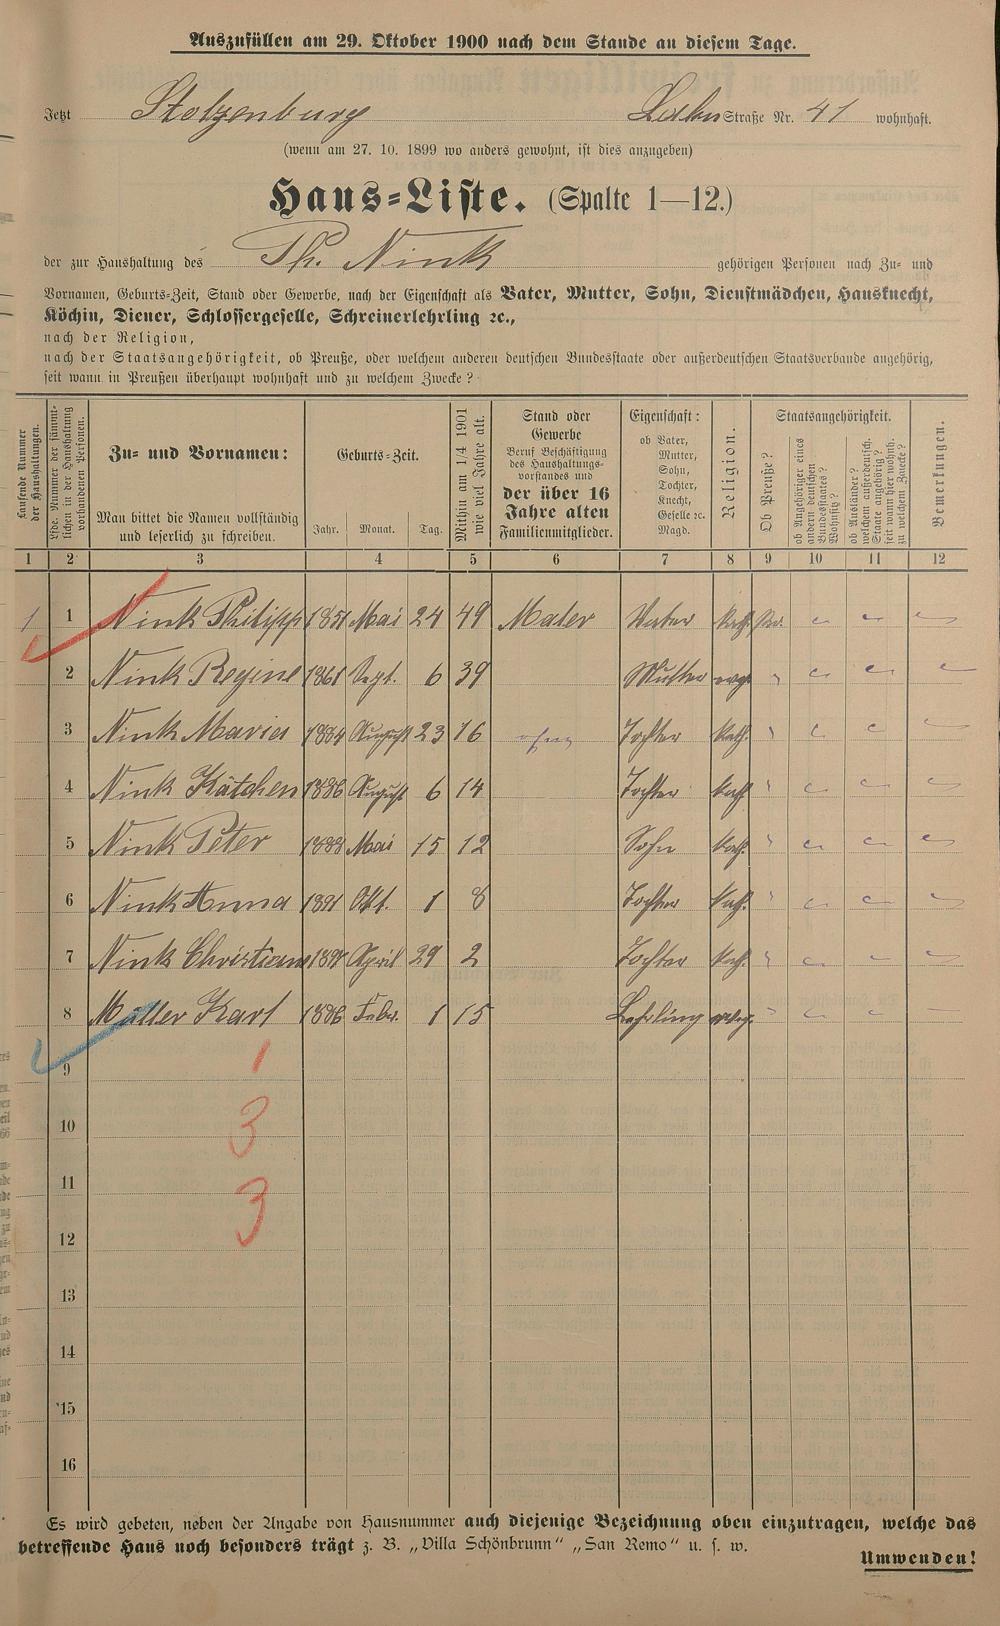 Auszufüllen am 29. Oktober 1900 nach dem Stande an diesem Tage.
Jetzt Stolzenburg Lahn Straße Nr. 41 wohnhaft.
(wenn am 27. 10. 1899 wo anders gewohnt, ist dies anzugeben)
Haus=Liste. (Spalte 1—12.)
der zur Haushaltung des Ph. Nink gehörigen Personen nach Zu- und
Vornamen, Geburts-Zeit, Stand oder Gewerbe, nach der Eigenschaft als Vater, Mutter, Sohn, Dienstmädchen, Hausknecht,
Köchin, Diener, Schlossergeselle, Schreinerlehrling ꝛc.,
nach der Religion,
nach der Staatsangehörigkeit, ob Preuße, oder welchem anderen deutschen Bundesstaate oder außerdeutschen Staatsverbande angehörig,
seit wann in Preußen überhaupt wohnhaft und zu welchem Zwecke?
Laufende Nummer der Haushaltungen.
Lfde. Nummer der sämmtlichen in der Haushaltung vorhandenen Personen.
Zu- und Vornamen:
Man bittet die Namen vollständig
und leserlich zu schreiben.
Geburts-Zeit.
Jahr. Monat. Tag.
Mithin am 1/4 1901 wie viel Jahre alt.
Stand oder
Gewerbe
Beruf Beschäftigung
des Haushaltungs-
vorstandes und
der über 16
Jahre alten
Familienmitglieder.
Eigenschaft:
ob Vater,
Mutter,
Sohn,
Tochter,
Knecht,
Geselle ꝛc.
Magd.
Religion.
Staatsangehörigkeit.
Ob Preuße?
ob Angehöriger eines andern deutschen Bundesstaates? Wohnsitz?
ob Ausländer? welchem außerdeutsch. Staate angehörig? seit wann hier wohnh. zu welchem Zwecke?
Bemerkungen.
1 2 3 4 5 6 7 8 9 10 11 12
1 1 Nink Philipp 1851 Mai 24 49 Maler Vater kath. Pr.
2 Nink Regine 1861 Sept. 6 39 Mutter evg. "
3 Nink Maria 1884 August 23 16 ohne Tochter kath. "
4 Nink Kätchen 1886 August 6 14 Tochter kath. "
5 Nink Peter 1888 Mai 15 12 Sohn kath. "
6 Nink Anna 1891 Okt. 1 8 Tochter kath. "
7 Nink Christiane April 29 2 Tochter kath. "
8 Müller Karl 1886 Febr. 1 15 Lehrling evg. "
9 1
10 3
11
12 3
13
14
15
16
Es wird gebeten, neben der Angabe von Hausnummer auch diejenige Bezeichnung oben einzutragen, welche das
betreffende Haus noch besonders trägt z. B. „Villa Schönbrunn“ „San Remo“ u. s. w.
Umwenden!